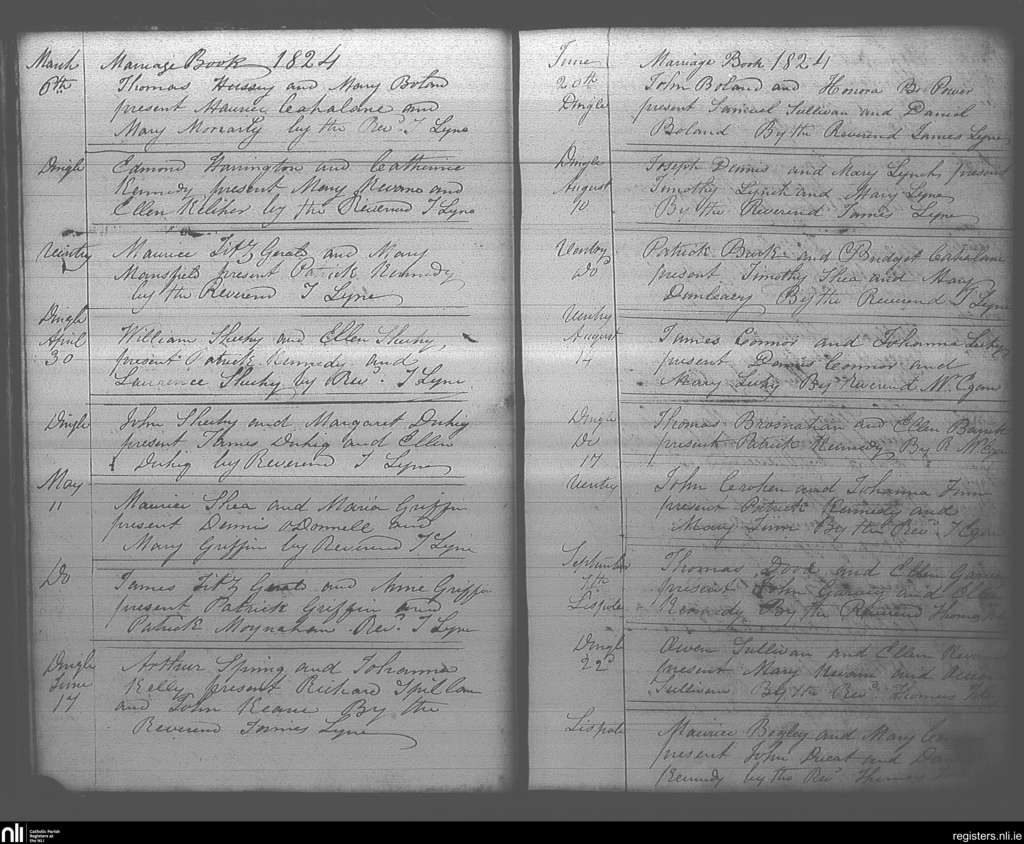 March Marriage Book 1824
6th Thomas Hussey and Mary Boland
present Maurice Cahalane and
Mary Moriarty by the Revd. J Lyne
Dingle Edmond Harrington and Catherine
Kennedy present Mary Kevane and
Ellen Keliher by the Reverend J Lyne
Ventry Maurice Fitz Gerald and Mary
Mansfield present Patrick Kennedy
by the Reverend J Lyne
Dingle
April William Sheehy and Ellen Sheehy,
30 present Patrick Kennedy and
Laurence Sheehy by Revd. J Lyne
Dingle John Sheehy and Margaret Duhig
present James Duhig and Ellen
Duhig by Reverend J Lyne
May
11 Maurice Shea and Maria Griffin
present Dennis ODonnell and
Mary Griffin by Reverend J Lyne
Do James Fitz Gerald and Anne Griffin
present Patrick Griffin and
Patrick Moynahan Revd. J Lyne
Dingle Arthur Spring and Johanna
June Kelly present Richard Spillan
17 and John Keane By the
Reverend James Lyne
June Marriage Book 1824
20th John Boland and Honora Power
Dingle present Samuel Sullivan and Daniel
Boland By the Reverend James Lyne
Dingle Joseph Dennis and Mary Lynch present
August Timothy Lynch and Mary Lyne
10 By the Reverend James Lyne
Ventry Patrick Burk and Bridget Cahalane
do present Timothy Shea and Mary
By the Reverend J Lyne
Ventry
August James Connor and Johanna
14 present Dennis Connor and
Mary By Reverend M. Egan
Dingle Thomas Brosnahan and Ellen
Do present Patrick Kennedy By R M. Egan
17
Ventry John Crohen and Johanna
present Patrick Kennedy and
Mary By the Revd. Egan
September Thomas and Ellen
7th present John Garvey and
Lispole Kennedy By the Reverend Thomas
Dingle Owen Sullivan and Ellen
22d present Mary Kevane and
Sullivan By the Revd. Thomas
Lispole Maurice Begley and Mary
present John and
Kennedy by the Revd. Thomas
nli Catholic Parish
Registers at
the NLI
registers.nli.ie